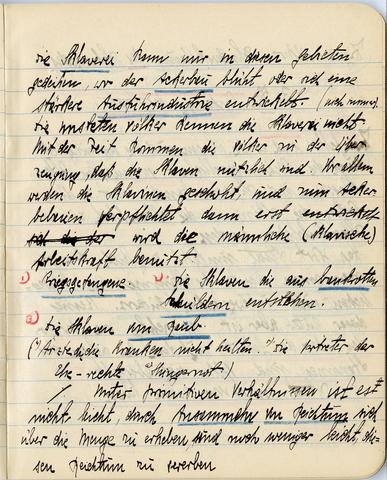 die Sklaverei kann nur in diesen gebieten
gedeihen, wo der Ackerbau blüht oder sich eine
stärkere Ausfuhrindustrie entwickelt.
die meisten Völker kennen die Sklaverei nicht
Mit der Zeit kommen die Völker zu der Über
zeugung, daß die Sklaven nützlich sind. Vor allem
werden die Sklavinen geschont, und zum Acker
bebauen verpflichtet dann erst entwickelt
sich die der wird die männliche (sklavische)
Arbeitskraft benützt
1) Kriegsgefangene. 2) die Sklaven die aus bankrotten
Schuldern entstehen.
3) die Sklaven um Raub.
die Kranken nicht heilten. die Vertreter der
Ehe-rechte Hungersnot)
Unter primitiven Verhältnissen ist es
nicht leicht, durch Ansammeln von Reichtum sich
über die Menge zu erheben, sind noch weniger leicht, die
sen Reichtum zu vererben